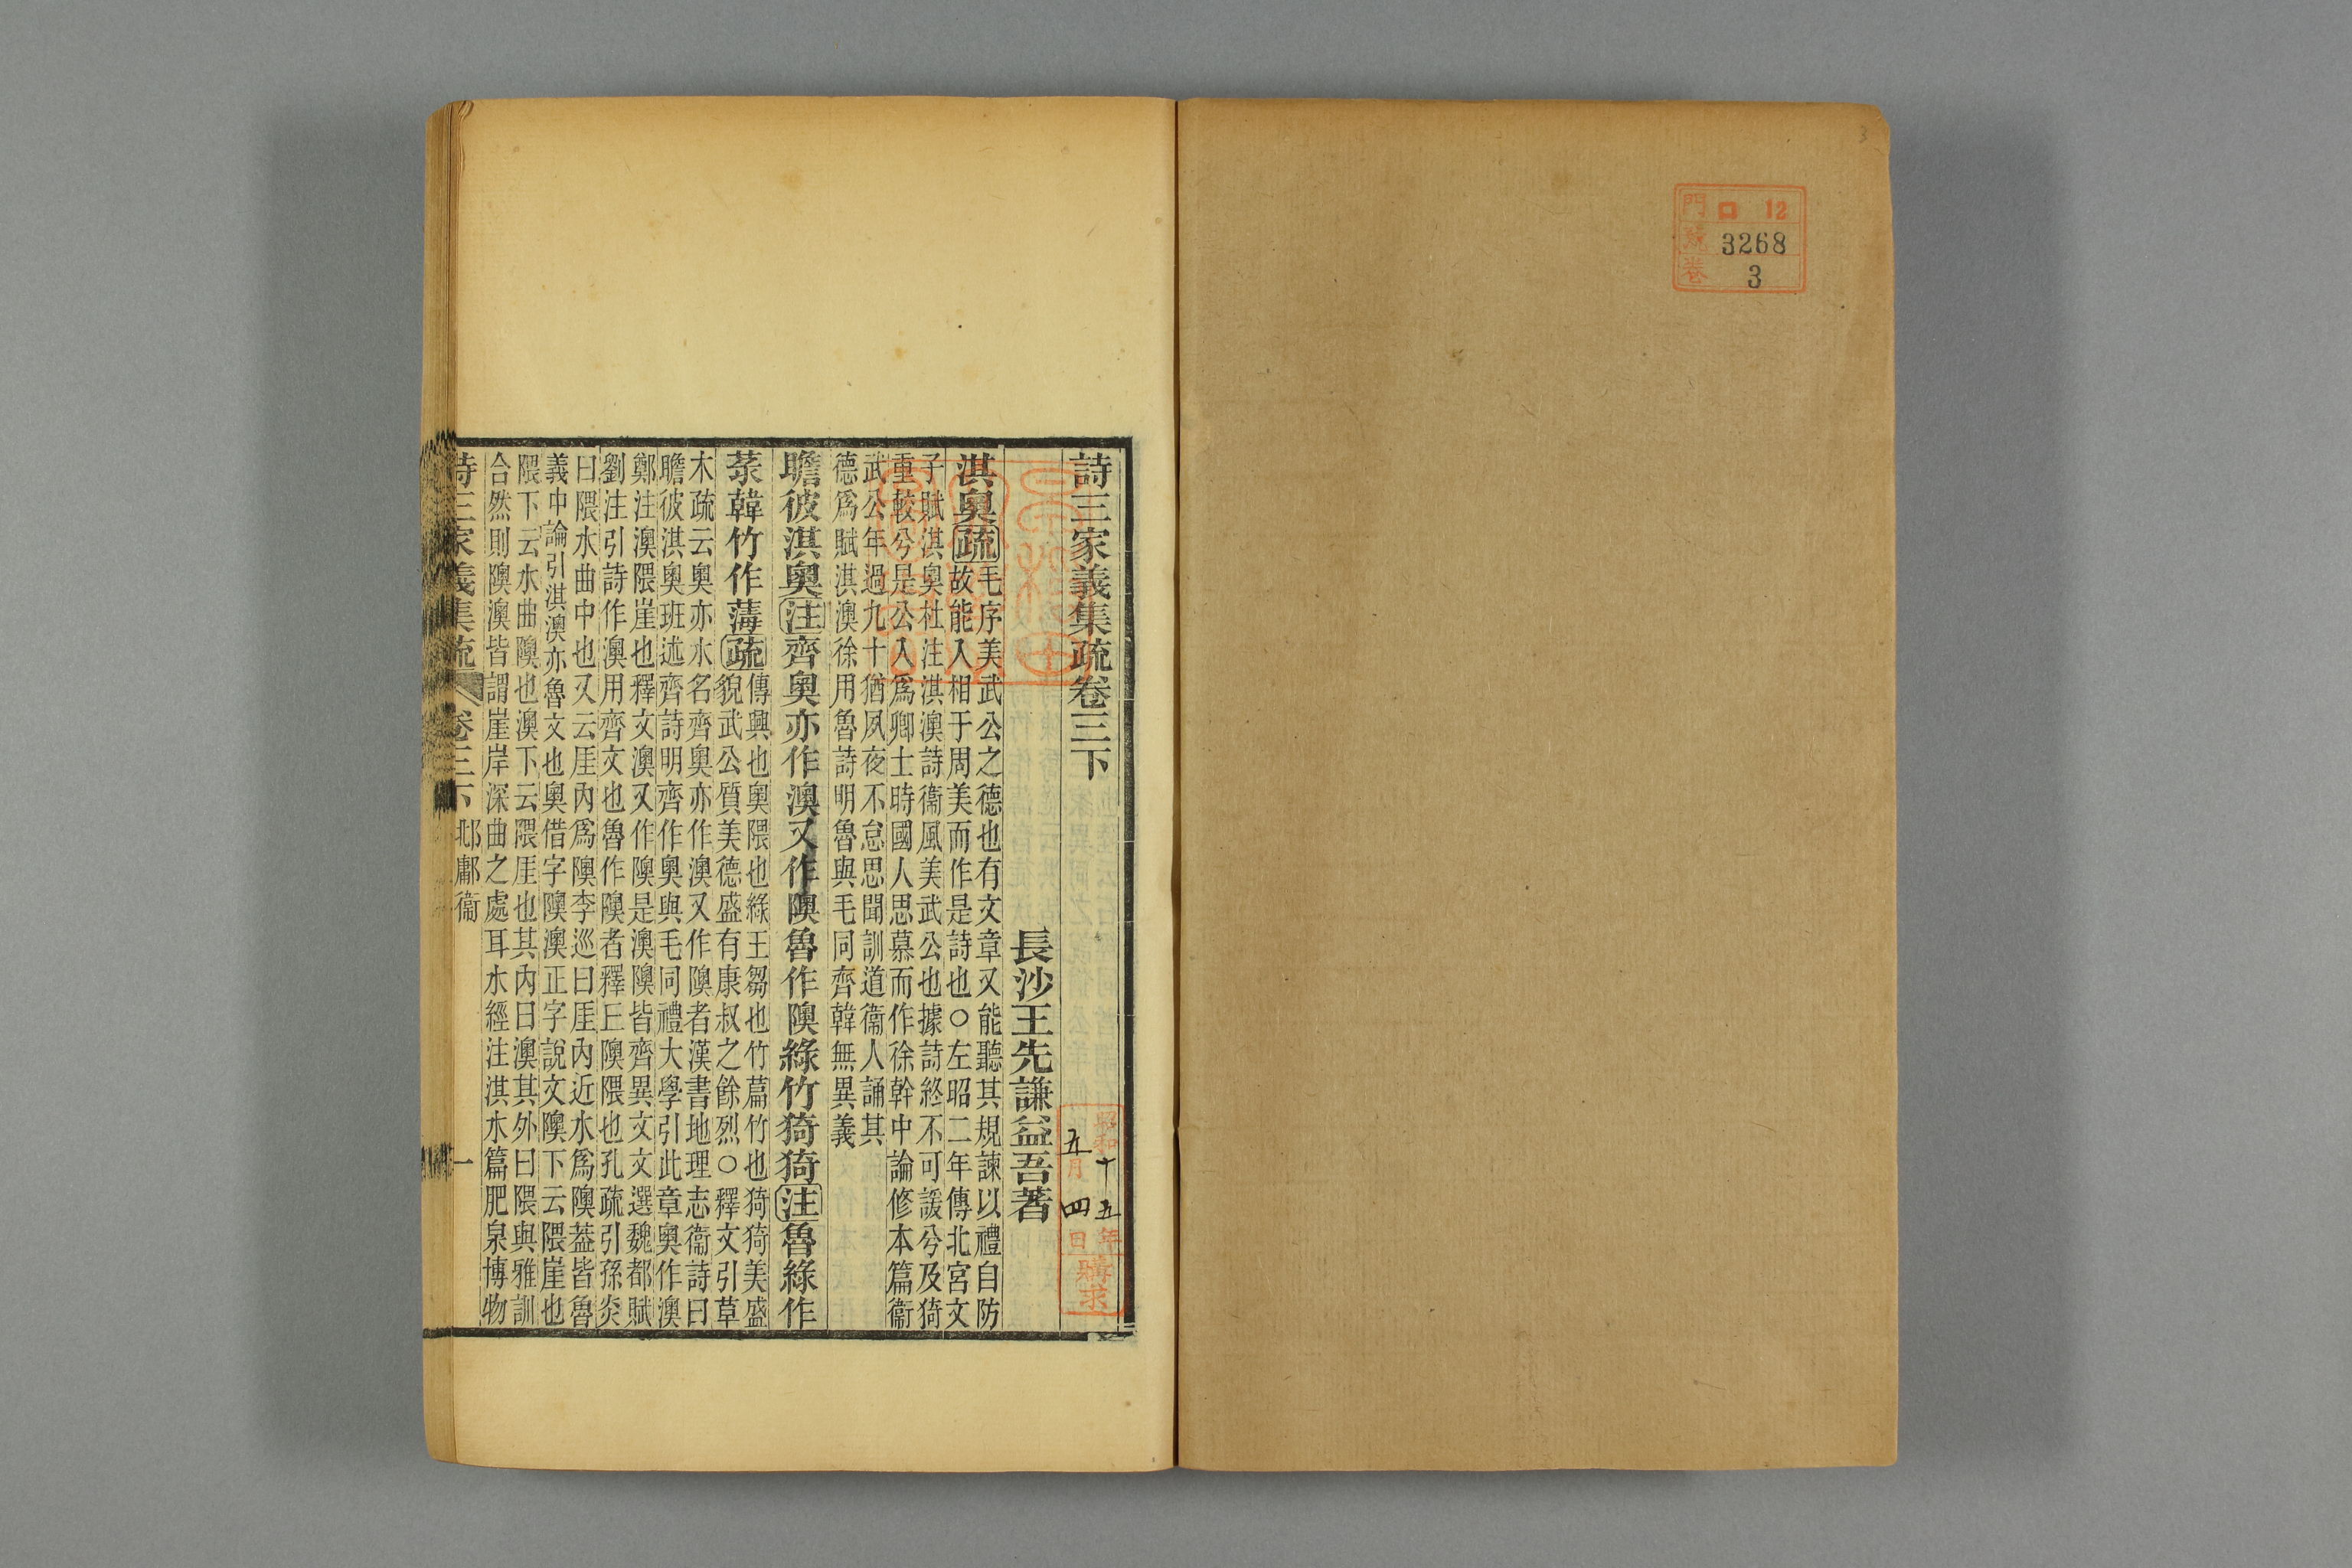 門 口 12
號 3268
卷 3
3
詩三家義集疏卷三下
昭和十五年五月四日購求
長沙王先謙益吾著
淇奧疏毛序美武公之德也有文章又能聽其規諫以禮自防
故能入相于周美而作是詩也○左昭二年傳北宮文
子賦淇奧杜注淇澳詩衞風美武公也據詩終不可諼兮及猗
重較兮是公入爲卿士時國人思慕而作徐幹中論修本篇衞
武公年過九十猶夙夜不怠思聞訓道衞人誦其
德爲賦淇澳徐用魯詩明魯與毛同齊韓無異義
瞻彼淇奧注齊奧亦作澳又作隩魯作隩綠竹猗猗注魯綠作
菉韓竹作薄疏傳興也奧隈也綠王芻也竹萹竹也猗猗美盛
貌武公質美德盛有康叔之餘烈○釋文引草
木疏云奧亦水名齊奧亦作澳又作隩者漢書地理志衞詩曰
瞻彼淇奧班述齊詩明齊作奧與毛同禮大學引此章奧作澳
鄭注澳隈崖也釋文澳又作隩是澳隩皆齊異文文選魏都賦
劉注引詩作澳用齊文也魯作隩者釋丘隩隈也孔疏引孫炎
曰隈水曲中也又云厓內爲隩李巡曰厓內近水爲隩葢皆魯
義中論引淇澳亦魯文也奧借字隩澳正字說文隩下云隈崖也
隈下云水曲隩也澳下云隈厓也其內曰澳其外曰隈與雅訓
合然則隩澳皆謂崖岸深曲之處耳水經注淇水篇肥泉博物
詩三家義集疏 卷三下 邶鄘衞 一